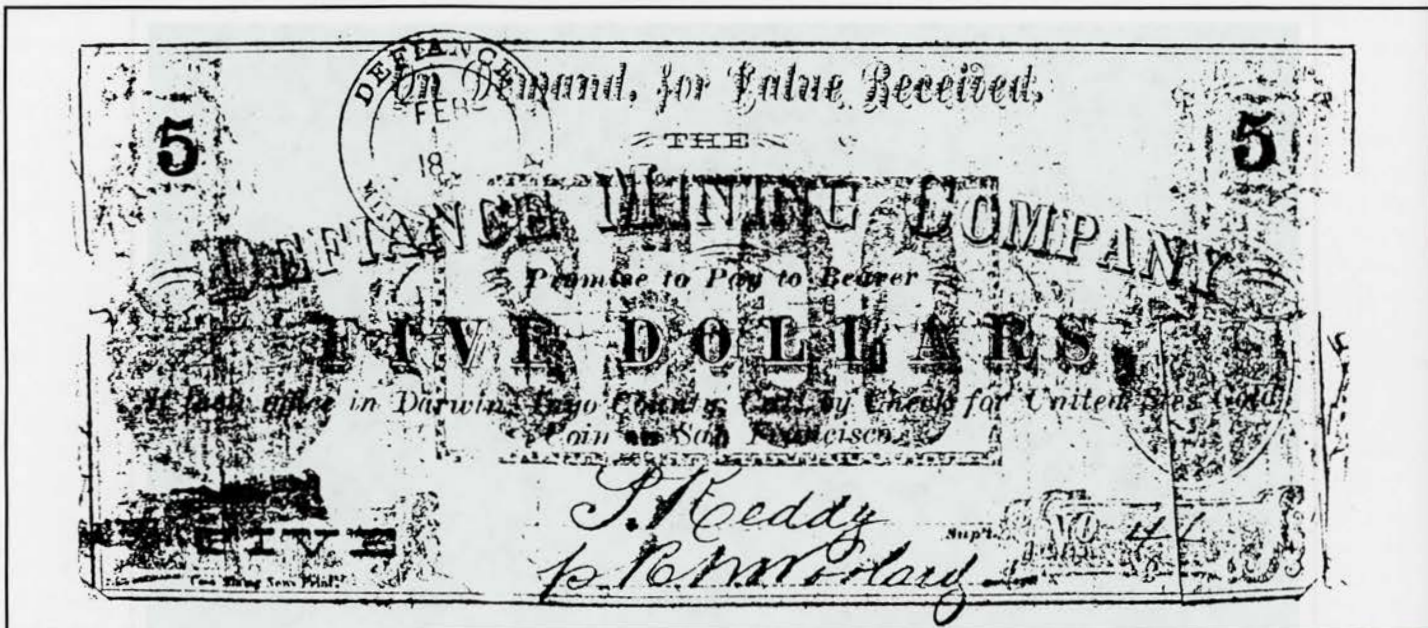 5
5
DEFIANCE
FEB
18
On Demand, for Value Received,
THE
DEFIANCE MINING COMPANY
Promise to Pay to Bearer
FIVE DOLLARS,
At office in Darwin, Inyo County, by Check for United Gold
Coin San Francisco
FIVE
P. Reddy
Sup't.
NO
Print